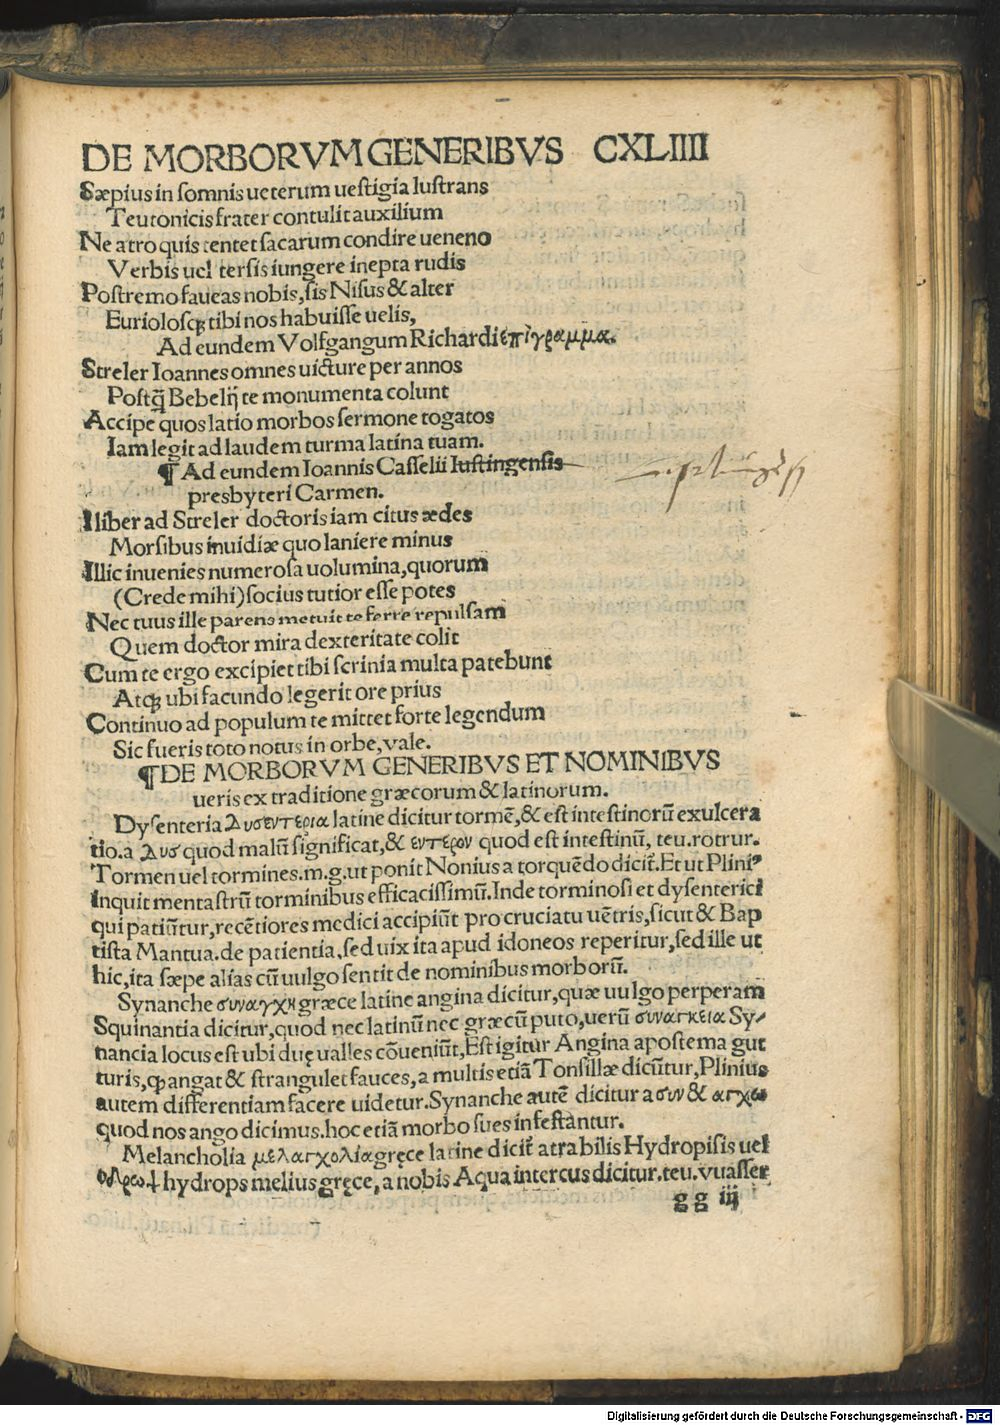 DE MORBORVM GENERIBVS CXLIIII
Sæpius in somnis ueterum uestigia lustrans
Teutonicis frater contulit auxilium
Ne atro quis tentet sacarum condire ueneno
Verbis uel tersis iungere inepta rudis
Postremo faueas nobis, sis Nisus & alter
Euriolosqꝫ tibi nos habuisse uelis,
Ad eundem Volfgangum Richardi ἐπίγραμμα.
Streler Ioannes omnes uicture per annos
Postq̃ Bebelij te monumenta colunt
Accipe quos latio morbos sermone togatos
Iam legit ad laudem turma latina tuam.
¶ Ad eundem Ioannis Casselii Iustingensis
presbyteri Carmen.
I liber ad Streler doctoris iam citus ædes
Morsibus inuidiæ quo laniere minus
Illic inuenies numerosa uolumina, quorum
(Crede mihi) socius tutior esse potes
Nec tuus ille parens metuit te ferre repulsam
Quem doctor mira dexteritate colit
Cum te ergo excipiet tibi scrinia multa patebunt
Atqꝫ ubi facundo legerit ore prius
Continuo ad populum te mittet forte legendum
Sic fueris toto notus in orbe, vale.
¶DE MORBORVM GENERIBVS ET NOMINIBVS
ueris ex traditione græcorum & latinorum.
Dysenteria λυσεντερια latine dicitur tormē, & est intestinorū exulcera
tio. a λυσ quod malū significat, & εντερον quod est intestinū, teu. rotrur.
Tormen uel tormines. m. g. ut ponit Nonius a torquēdo dicit̃. Et ut Pliniꝰ
Inquit mentastrū torminibus efficacissimū. Inde torminosi et dysenterici
qui patiūtur, recētiores medici accipiūt pro cruciatu uētris, sicut & Bap
tista Mantua. de patientia, sed uix ita apud idoneos reperitur, sed ille ut
hic, ita sæpe alias cū uulgo sentit de nominibus morborū.
Synanche συναγχη græce latine angina dicitur, quæ uulgo perperam
Squinantia dicitur, quod nec latinū nec græcū puto, uerū συναγκεια Sy-
nancia locus est ubi duę ualles cōueniūt, Est igitur Angina apostema gut
turis, ꝙ angat & strangulet fauces, a multis etiā Tonsillæ dicūtur, Plinius
autem differentiam facere uidetur. Synanche autē dicitur a συν & αγχω
quod nos ango dicimus. hoc etiā morbo sues infestantur.
Melancholia μελαγχολία gręce latine dicit̃ atra bilis Hydropisis uel
hydrops melius gręce, a nobis Aqua intercus dicitur. teu. vuasser
gg iij
Digitalisierung gefördert durch die Deutsche Forschungsgemeinschaft - DFG